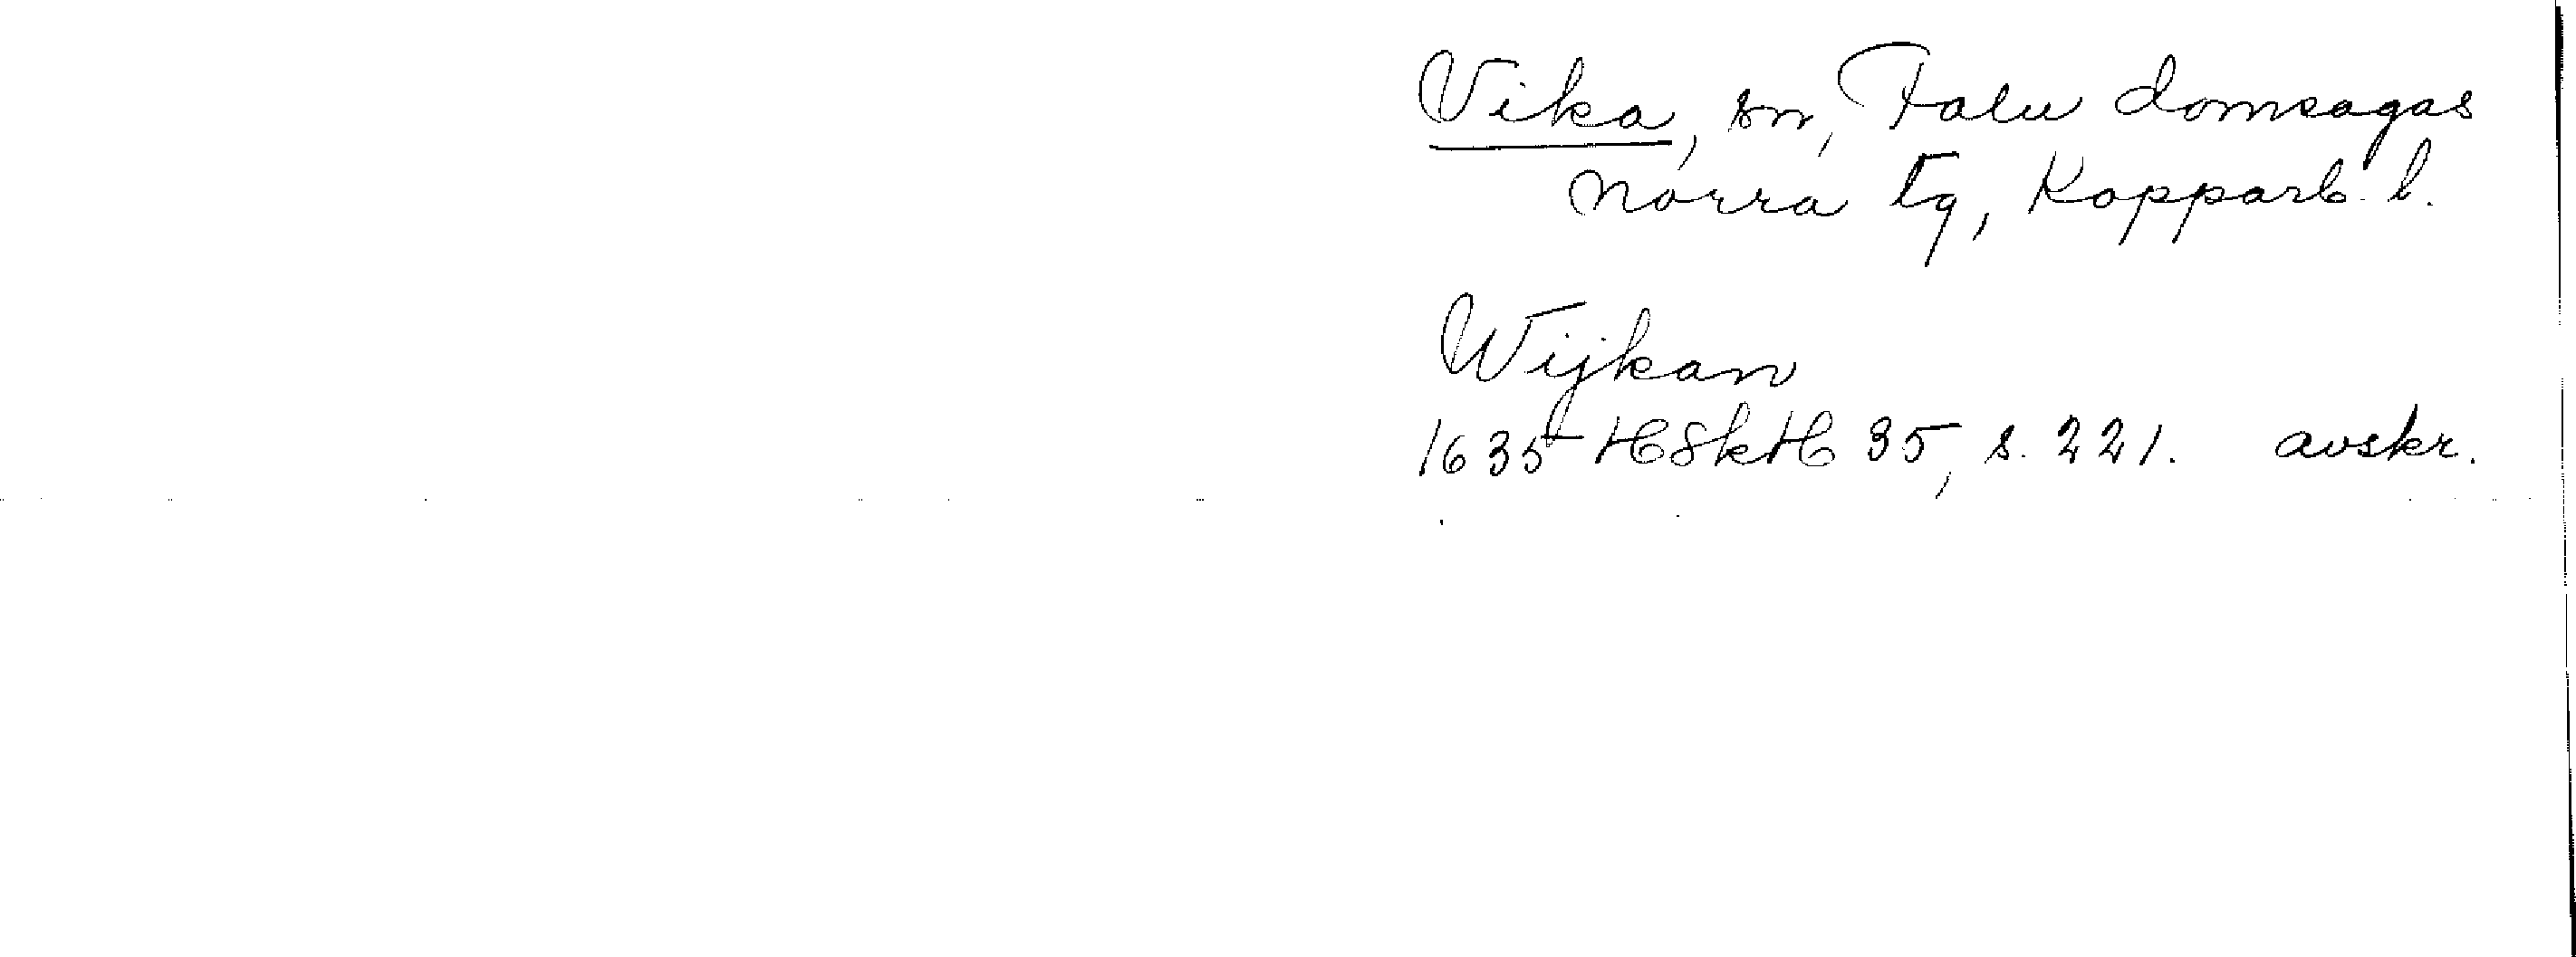 Vika, sn, Falu domsagas
norra tg, Kopparb. l.
Wijkan
1635 HSkH 35, s. 221. avskr.